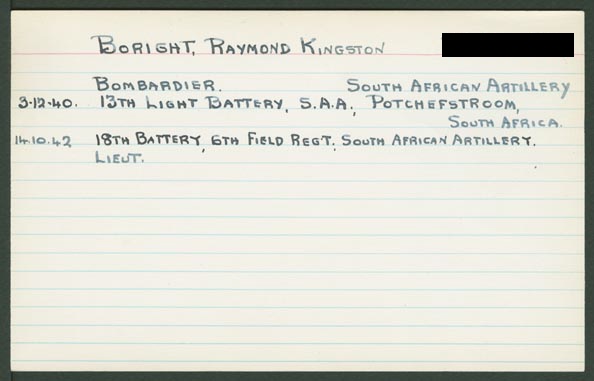 BORIGHT, RAYMOND KINGSTON
BOMBARDIER. SOUTH AFRICAN ARTILLERY
3·12·40. 13TH LIGHT BATTERY, S.A.A., POTCHEFSTROOM,
SOUTH AFRICA.
14·10·42 18TH BATTERY, 6TH FIELD REGT. SOUTH AFRICAN ARTILLERY.
LIEUT.